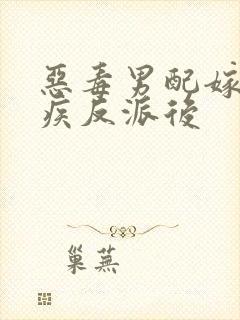 惡毒男配嫁
疾反派後
巢蕪